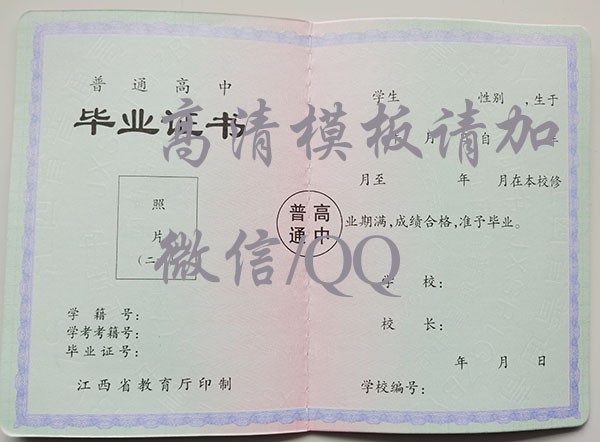 普通高中
毕业证书
照
片
(二
学籍号:
学考考籍号:
毕业证号:
江西省教育厅印制
普高
通中
学生 性别 ,生于
月 自 年
月至 年 月在本校修
业期满,成绩合格,准予毕业。
学校:
校长:
年月日
学校编号:
高清模板请加
微信/QQ